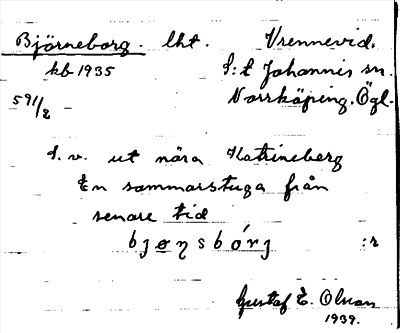 Björneborg. lht. Vrennevid.
kb 1935 S:t Johannis sn.
591/2 Norrköping. Ögl.
S. v. ut nära Katrineberg
En sommarstuga från
senare tid
:r
Gustaf E. Olson
1939.